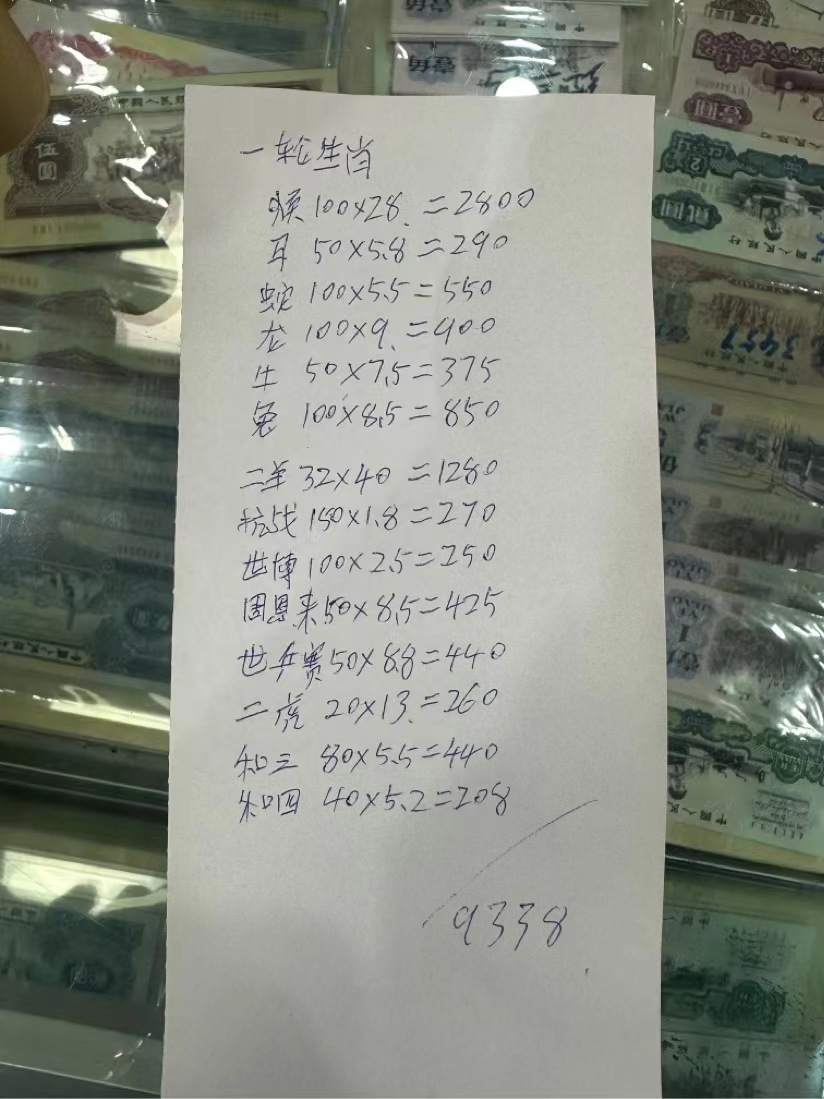 一轮生肖
猴 100×28 =2800
耳 50×5.8=290
蛇 100×5.5=550
龙 100×9 =900
牛 50×7.5=375
兔 100×8.5=850
二羊 32×40 =1280
抗战 150×1.8=270
世博 100×2.5=250
周恩来50×8.5=425
世乒赛50×8.8=440
二虎 20×13 =260
和三 80×5.5=440
和四 40×5.2=208
9338
伍圆
中国人民银
壹角
壹角
壹圆
贰圆
中国人民银行
3957
中国人民